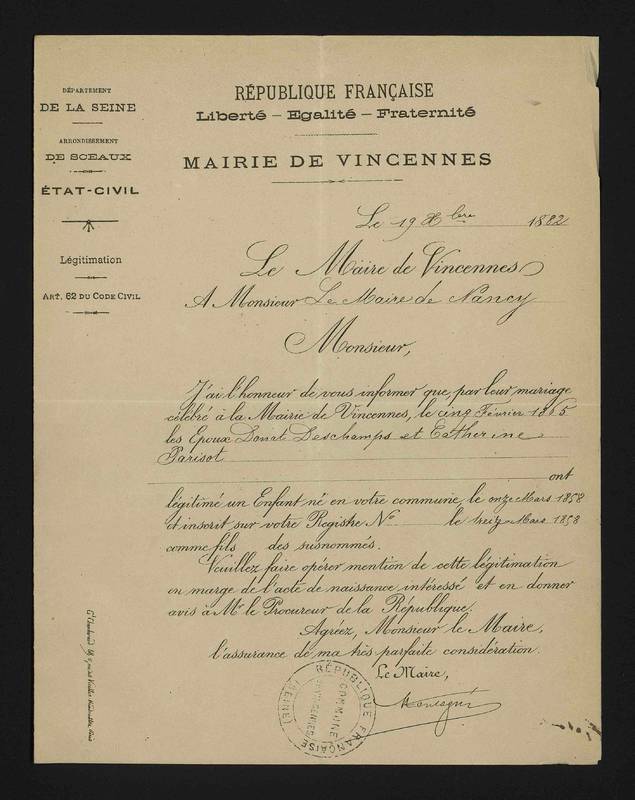 DÉPARTEMENT
DE LA SEINE
ARRONDISSEMENT
DE SCEAUX
ÉTAT-CIVIL
Légitimation
ART. 62 DU CODE CIVIL
RÉPUBLIQUE FRANÇAISE
Liberté – Egalité – Fraternité
MAIRIE DE VINCENNES
Le 19 Xbre 1882
Le Maire de Vincennes
A Monsieur Le Maire de Nancy
Monsieur,
J'ai l'honneur de vous informer que, par leur mariage
célébré à la Mairie de Vincennes, le cinq Février 1865
les Epoux Donat Deschamps et Catherine
Parisot
ont
légitimé un Enfant né en votre commune, le onze Mars 1858
et inscrit sur votre Registre No le treize Mars 1858
comme fils des susnommés.
Veuillez faire opérer mention de cette légitimation
en marge de l'acte de naissance intéressé et en donner
avis à Mr le Procureur de la République.
Agréez, Monsieur le Maire,
l'assurance de ma très parfaite considération.
Le Maire,
RÉPUBLIQUE FRANÇAISE (SEINE)
COMMUNE
DE VINCENNES